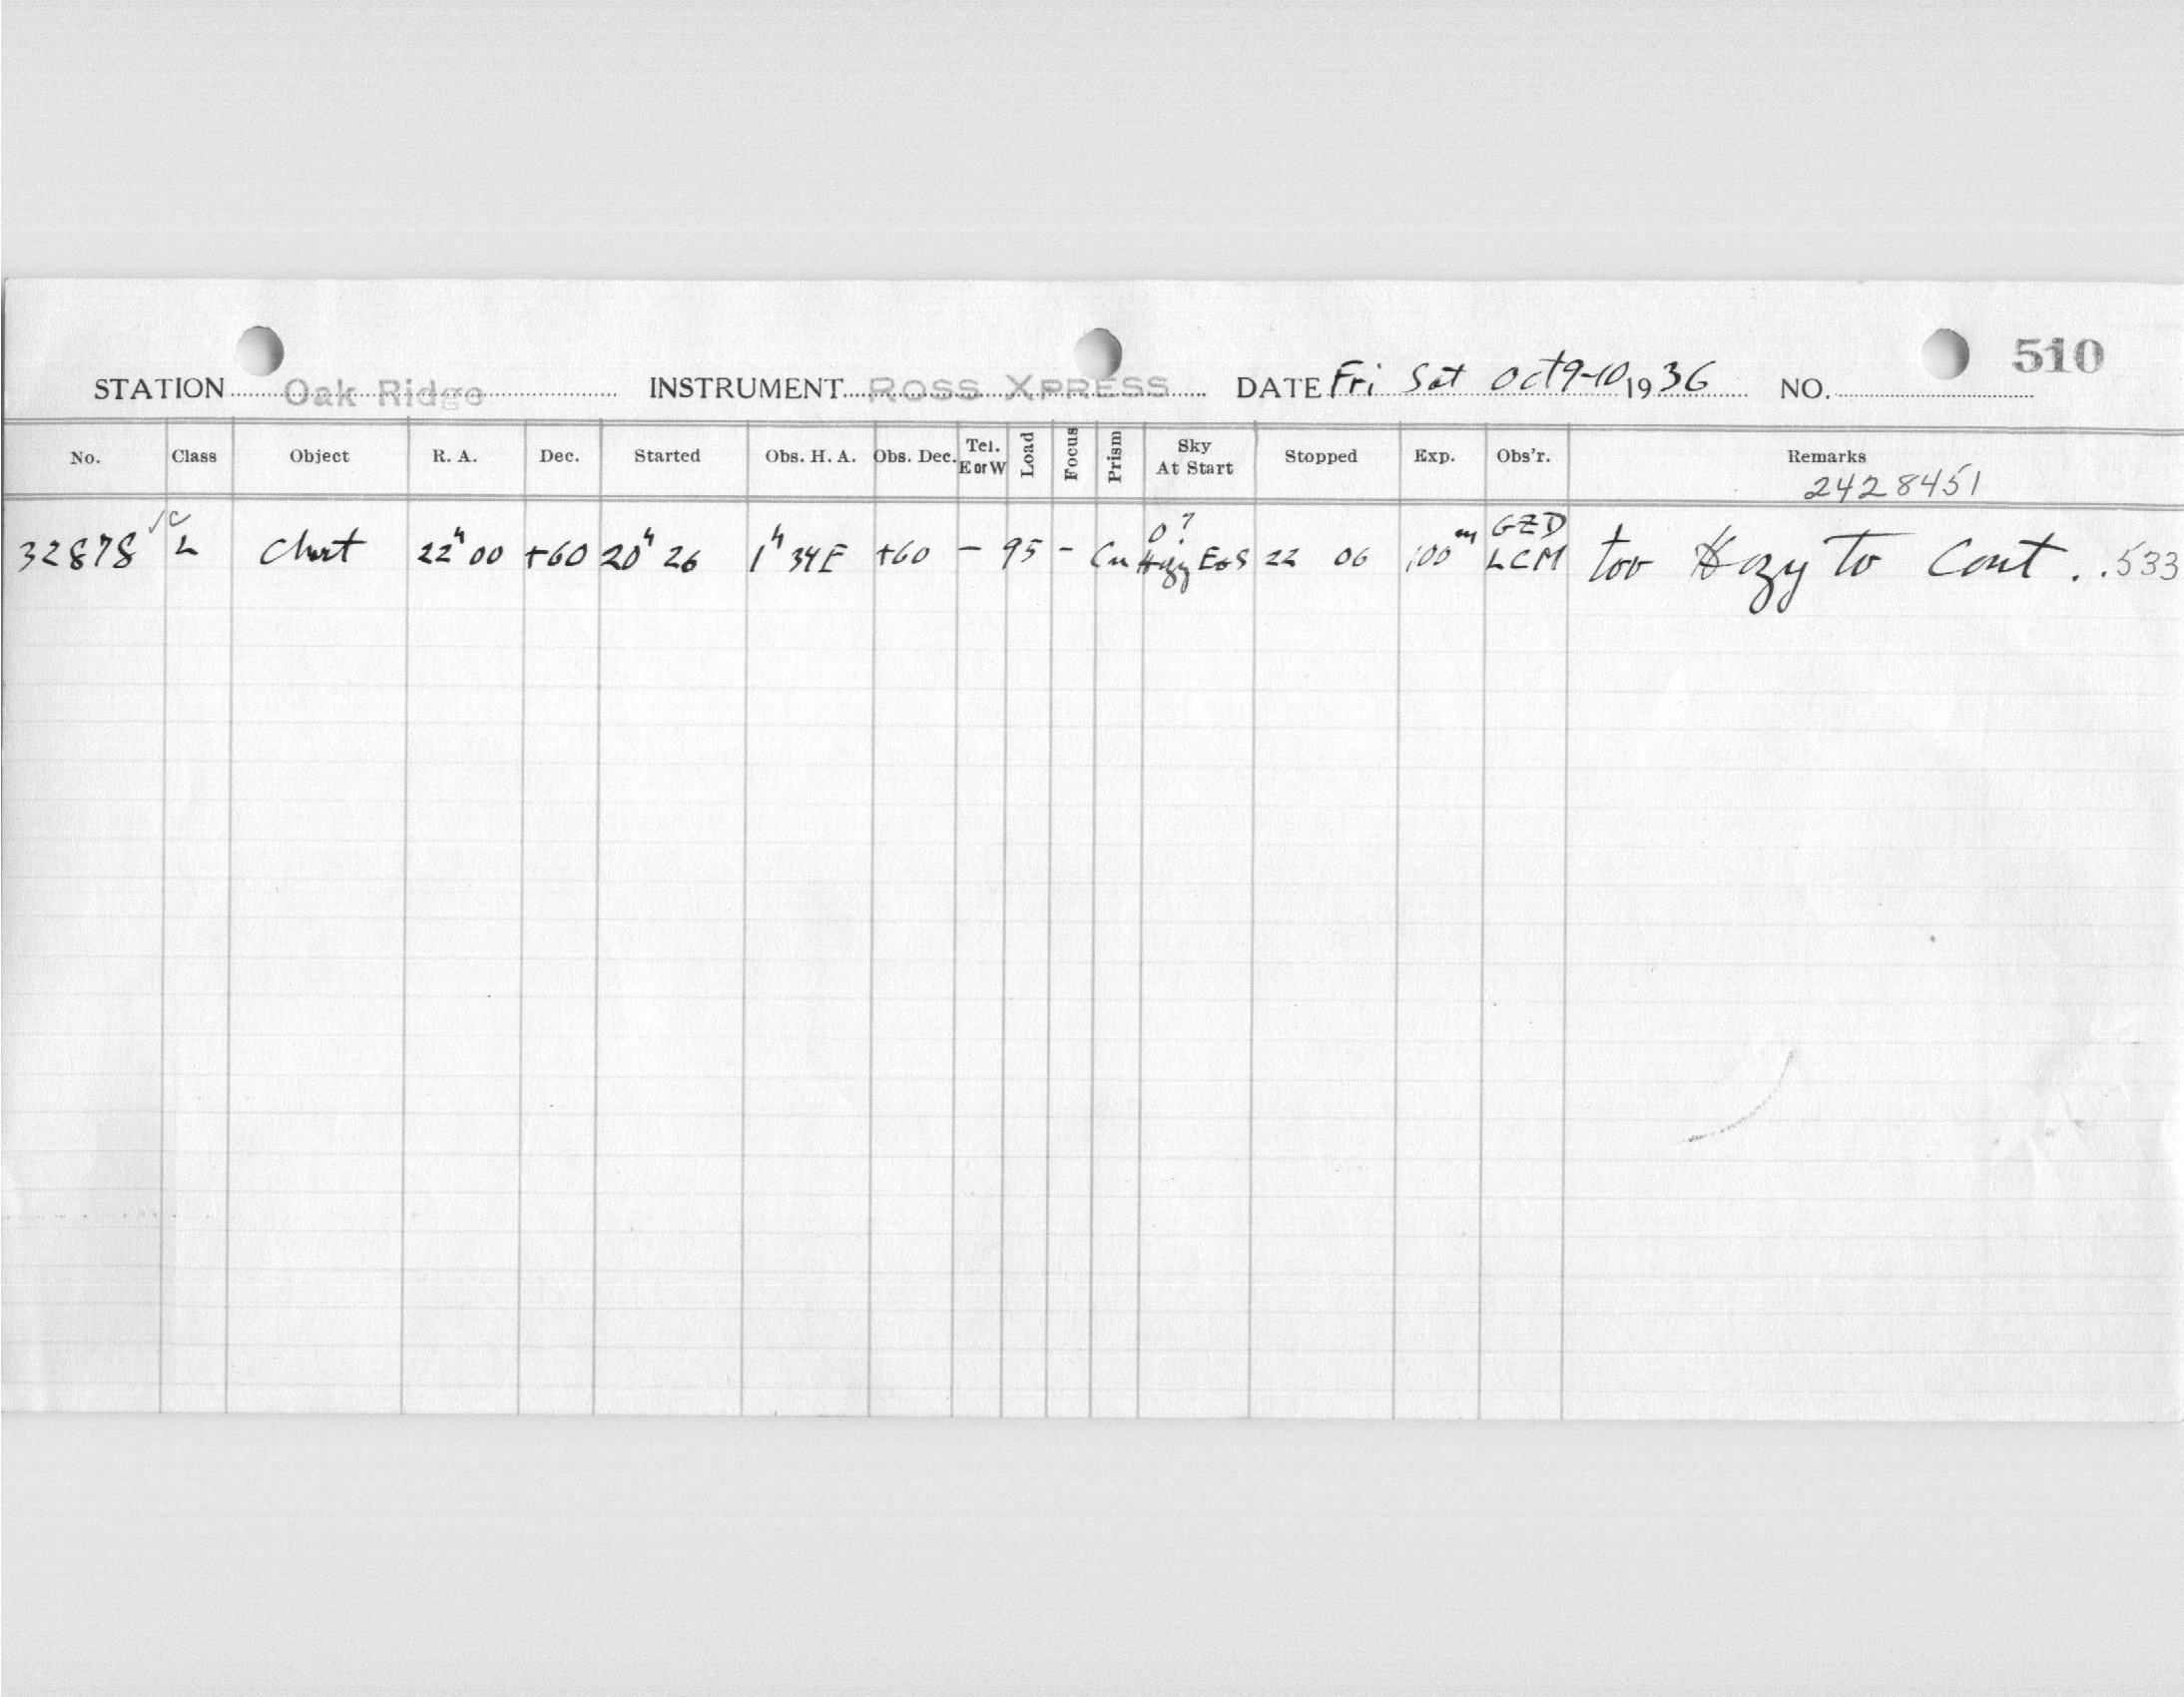 510
STATION Oak Ridge INSTRUMENT ROSS XPRESS DATE Fri Sat Oct 9-10 1936 NO.
No. Class Object R. A. Dec. Started Obs. H. A. Obs. Dec. Tel. E or W Load Focus Prism Sky At Start Stopped Exp. Obs'r. Remarks
2428451
✓ c 0? GED
32878 L Chart 22h 00 +60 20h 26 1h 34E +60 - 95 - Hazy E&S 22 06 100m LCM too Hazy to Cont. .533